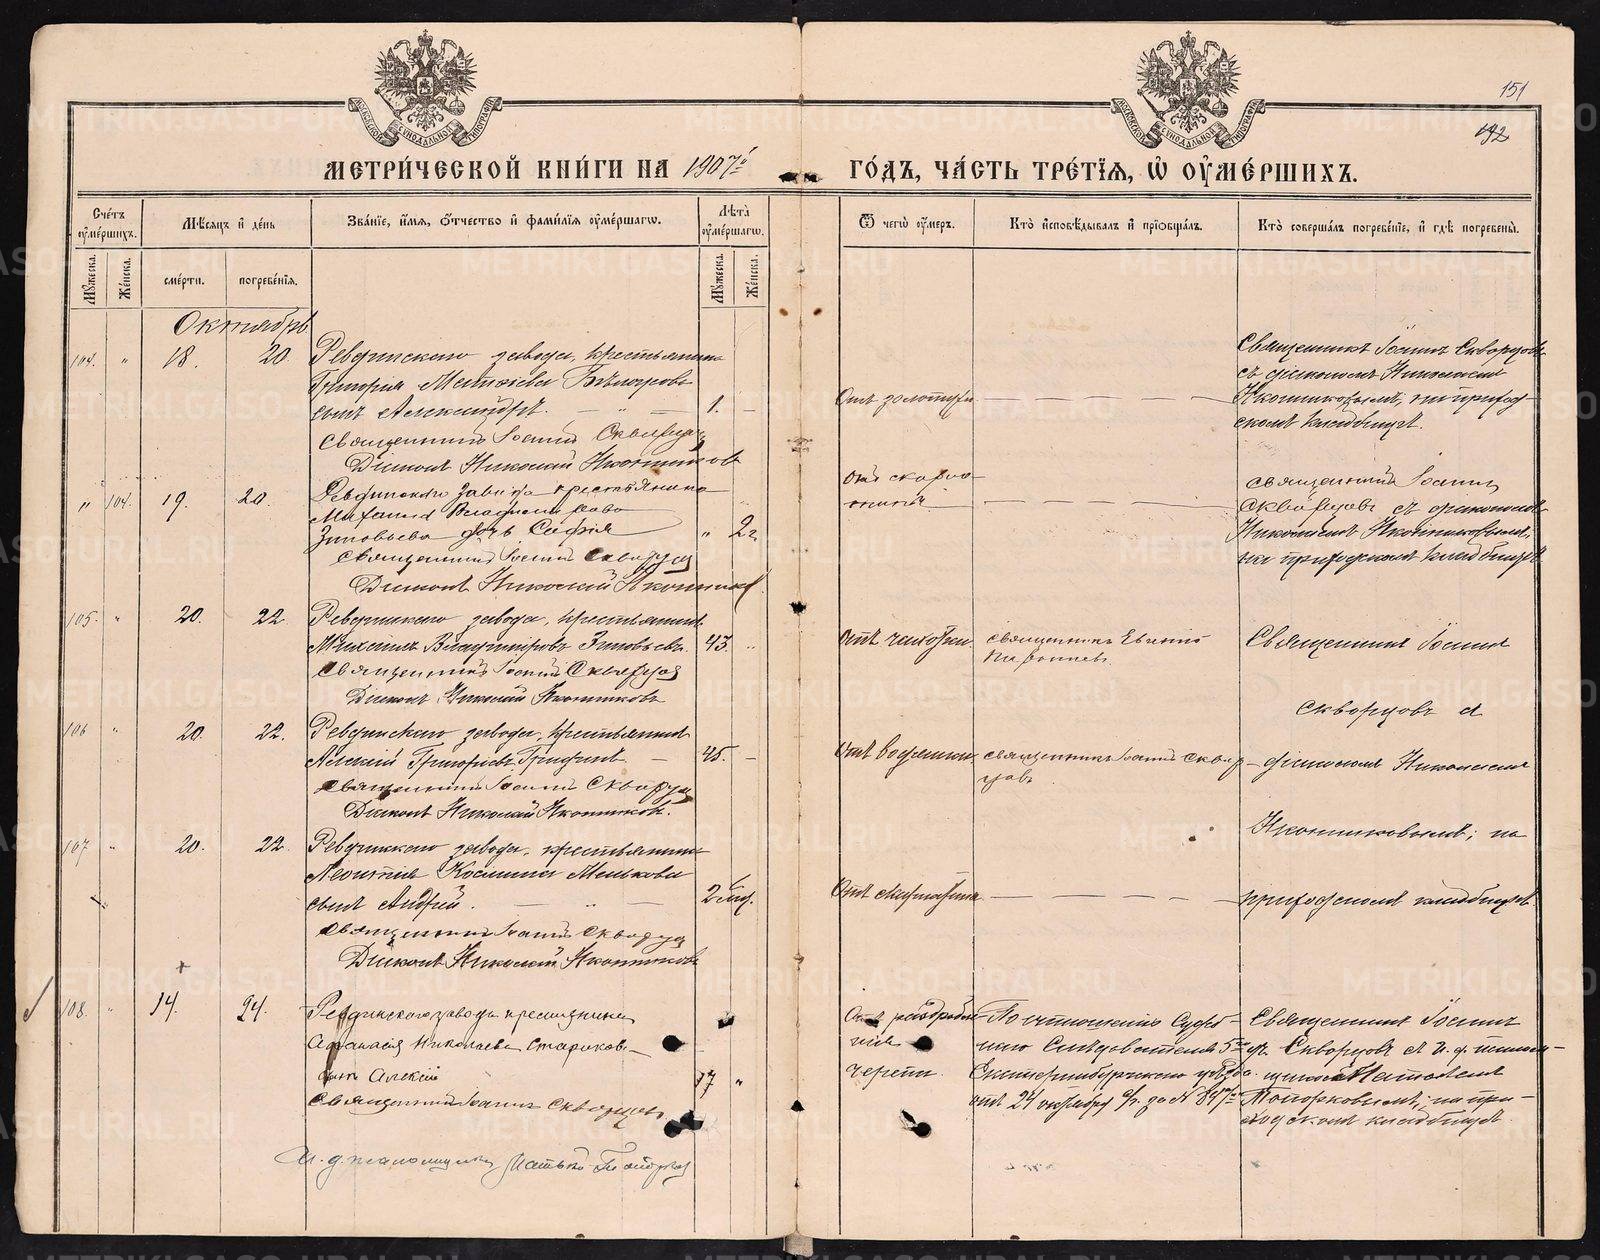 151
192
МЕТРИ́ЧЕСКОЙ КНИ́ГИ НА 1907й
ГО́ДЪ, ЧА́СТЬ ТРЕ́ТІЯ, Ѡ҆ ОУ҆МЕ́РШИХЪ.
Сче́тъ оу҆ме́ршихъ.
Мꙋ́жеска.
Же́нска.
Мѣ́сяцъ и҆ де́нь
сме́рти.
погребе́нїя.
Зва́нїе, и҆́мя, ѻ҆́тчество и҆ фамі́лїя оу҆ме́ршагѡ.
Лѣ́та оу҆ме́ршагѡ.
Мꙋ́жеска.
Же́нска.
Ѿ чегѡ̀ оу҆́меръ.
Кто̀ и҆сповѣ́дывалъ и҆ прїѡбща́лъ.
Кто̀ соверша́лъ погребе́нїе, и҆ гдѣ̀ погребены̀.
Октябрь
104. " 18. 20.
Ревдинскаго завода, крестьянина
Григорія Матвѣева Бѣлоусова
сынъ Александръ. 1.
Священникъ Іоаннъ Скворцовъ
Діаконъ Николай Иконниковъ
Отъ золотухи.
Священникъ Іоаннъ Скворцовъ
съ діакономъ Николаемъ
Иконниковымъ, на приход-
скомъ кладбищѣ.
" 104. 19. 20.
Ревдинскаго завода крестьянина
Михаила Владимірова
Зиновьева дочь Софія " 2г.
Священникъ Іоаннъ Скворцовъ
Діаконъ Николай Иконниковъ
Отъ скарла-
тины
священникъ Іоаннъ
Скворцовъ съ діакономъ
Николаемъ Иконниковымъ,
на приходскомъ кладбищѣ
105. " 20. 22.
Ревдинскаго завода, крестьянинъ
Михаилъ Владиміровъ Зиновьевъ. 43. "
Священникъ Іоаннъ Скворцовъ
Діаконъ Николай Иконниковъ
Отъ чахотки.
священникъ Евгеній
Священникъ Іоаннъ
Скворцовъ съ
106 " 20. 22.
Ревдинскаго завода, крестьянинъ
Алексій Григорьевъ 45.
Священникъ Іоаннъ Скворцовъ
Діаконъ Николай Иконниковъ.
Отъ водянки
священникъ Іоаннъ Сквор-
цовъ
діакономъ Николаемъ
Иконниковымъ; на
107 " 20. 22.
Ревдинскаго завода, крестьянина
Леонтія Косьмина Мелькова
сынъ Андрей. 2 мѣс.
Священникъ Іоаннъ Скворцовъ
Діаконъ Николай Иконниковъ
приходскомъ кладбищѣ.
108. " 14. 24.
Ревдинскаго завода крестьянина
Афанасія Николаева Старкова
сынъ Алексій 17 "
Священникъ Іоаннъ Скворцовъ
И. д. псаломщика
Отъ раздробле-
нія
черепа.
По отношенію Судеб-
наго Слѣдователя 5го уч.
Екатеринбургскаго уѣзда
отъ 24 октября с/г. за №
Священникъ Іоаннъ
Скворцовъ съ и. д. псалом-
щика
Топорковымъ; на при-
ходскомъ кладбищѣ.
METRIKI.GASO-URAL.RU